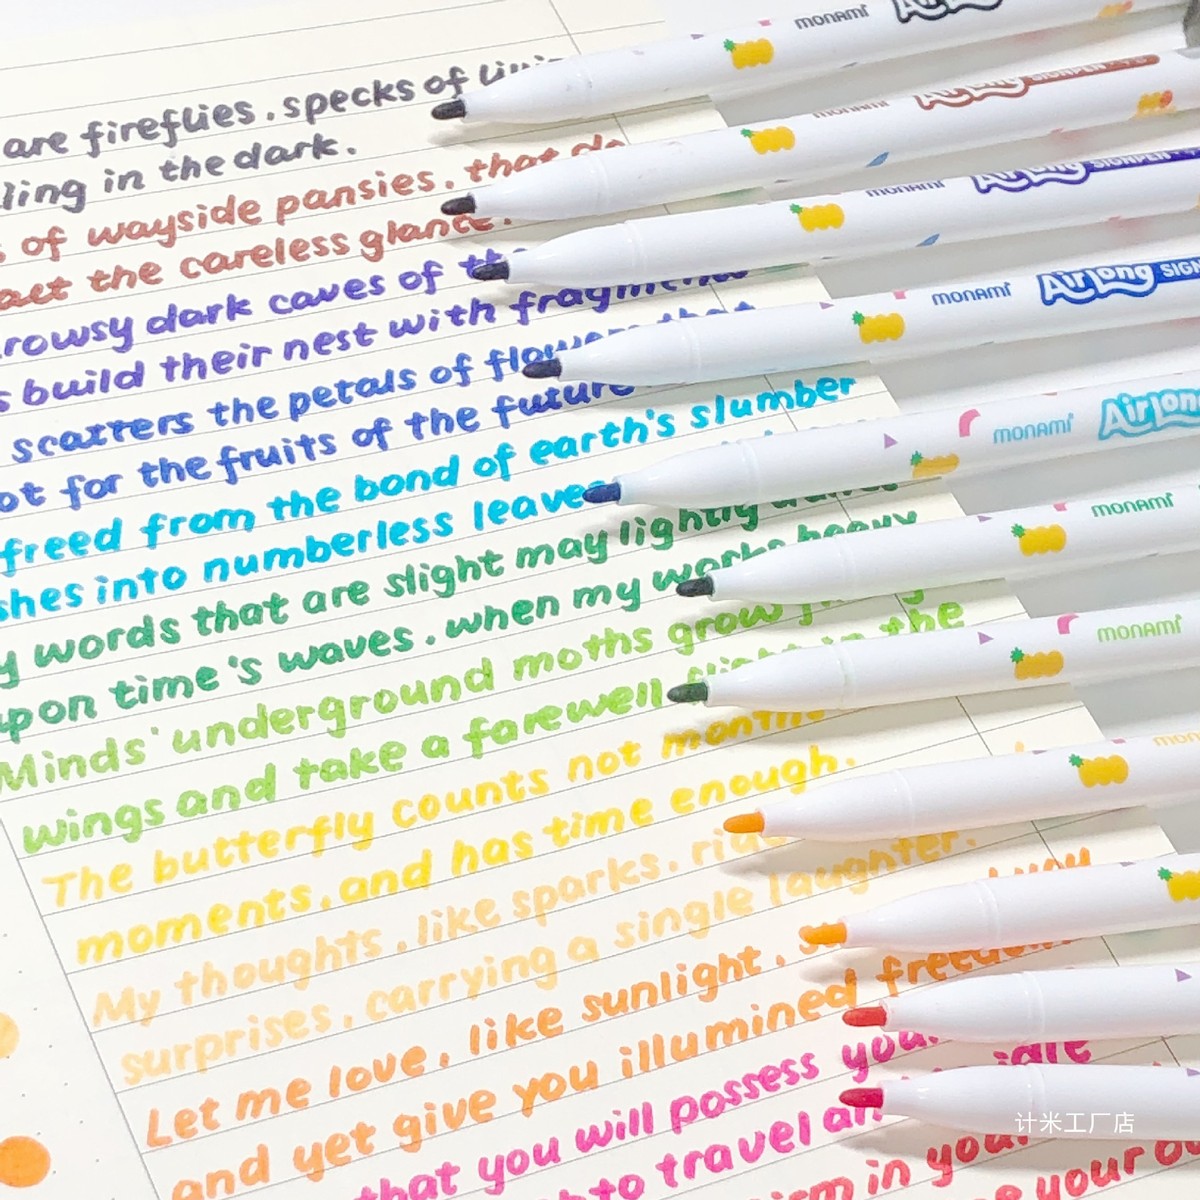 are fireflies. specks of
ling in the dark.
of wayside pansies. that do
the careless glance.
rowsy dark caves of
build their nest with fragments
scatters the petals of flowers that
for the fruits of the future
freed from the bond of earth's slumber
shes into numberless leaves
words that are slight may lightly
upon time's waves. when my works heavy
Minds' underground moths grow
wings and take a farewell flight in the
The butterfly counts not months
moments, and has time enough.
My thoughts, like sparks, ride
surprises, carrying a single laughter.
Let me love, like sunlight,
and yet give you illumined freedom
that you will possess you.
to travel
in your
your
monami
monami
monami AirLong SIGNPEN
monami AirLong SIGN
monami AirLong
monami
monami
计米工厂店